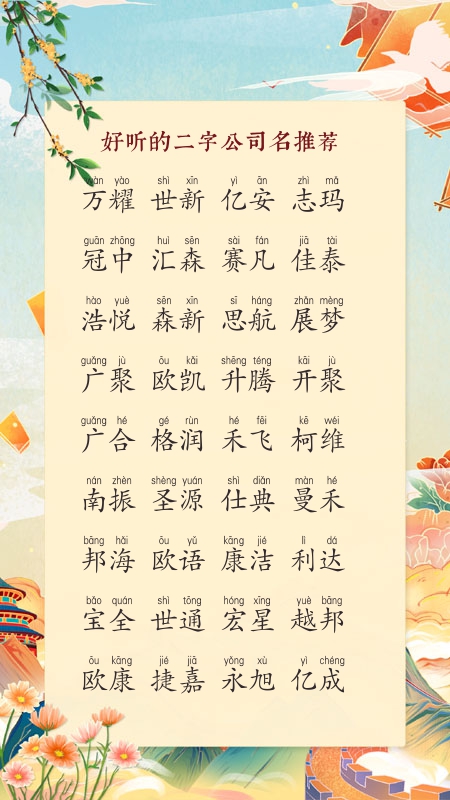 好听的二字公司名推荐
wàn yào shì xīn yì ān zhì mǎ
万耀 世新 亿安 志玛
guān zhōng huì sēn sài fán jiā tài
冠中 汇森 赛凡 佳泰
hào yuè sēn xīn sī háng zhǎn mèng
浩悦 森新 思航 展梦
guǎng jù ōu kǎi shēng téng kāi jù
广聚 欧凯 升腾 开聚
guǎng hé gé rùn hé fēi kē wéi
广合 格润 禾飞 柯维
nán zhèn shèng yuán shì diǎn màn hé
南振 圣源 仕典 曼禾
bāng hǎi ōu yǔ kāng jié lì dá
邦海 欧语 康洁 利达
bǎo quán shì tōng hóng xīng yuè bāng
宝全 世通 宏星 越邦
ōu kāng jié jiā yǒng xù yì chéng
欧康 捷嘉 永旭 亿成